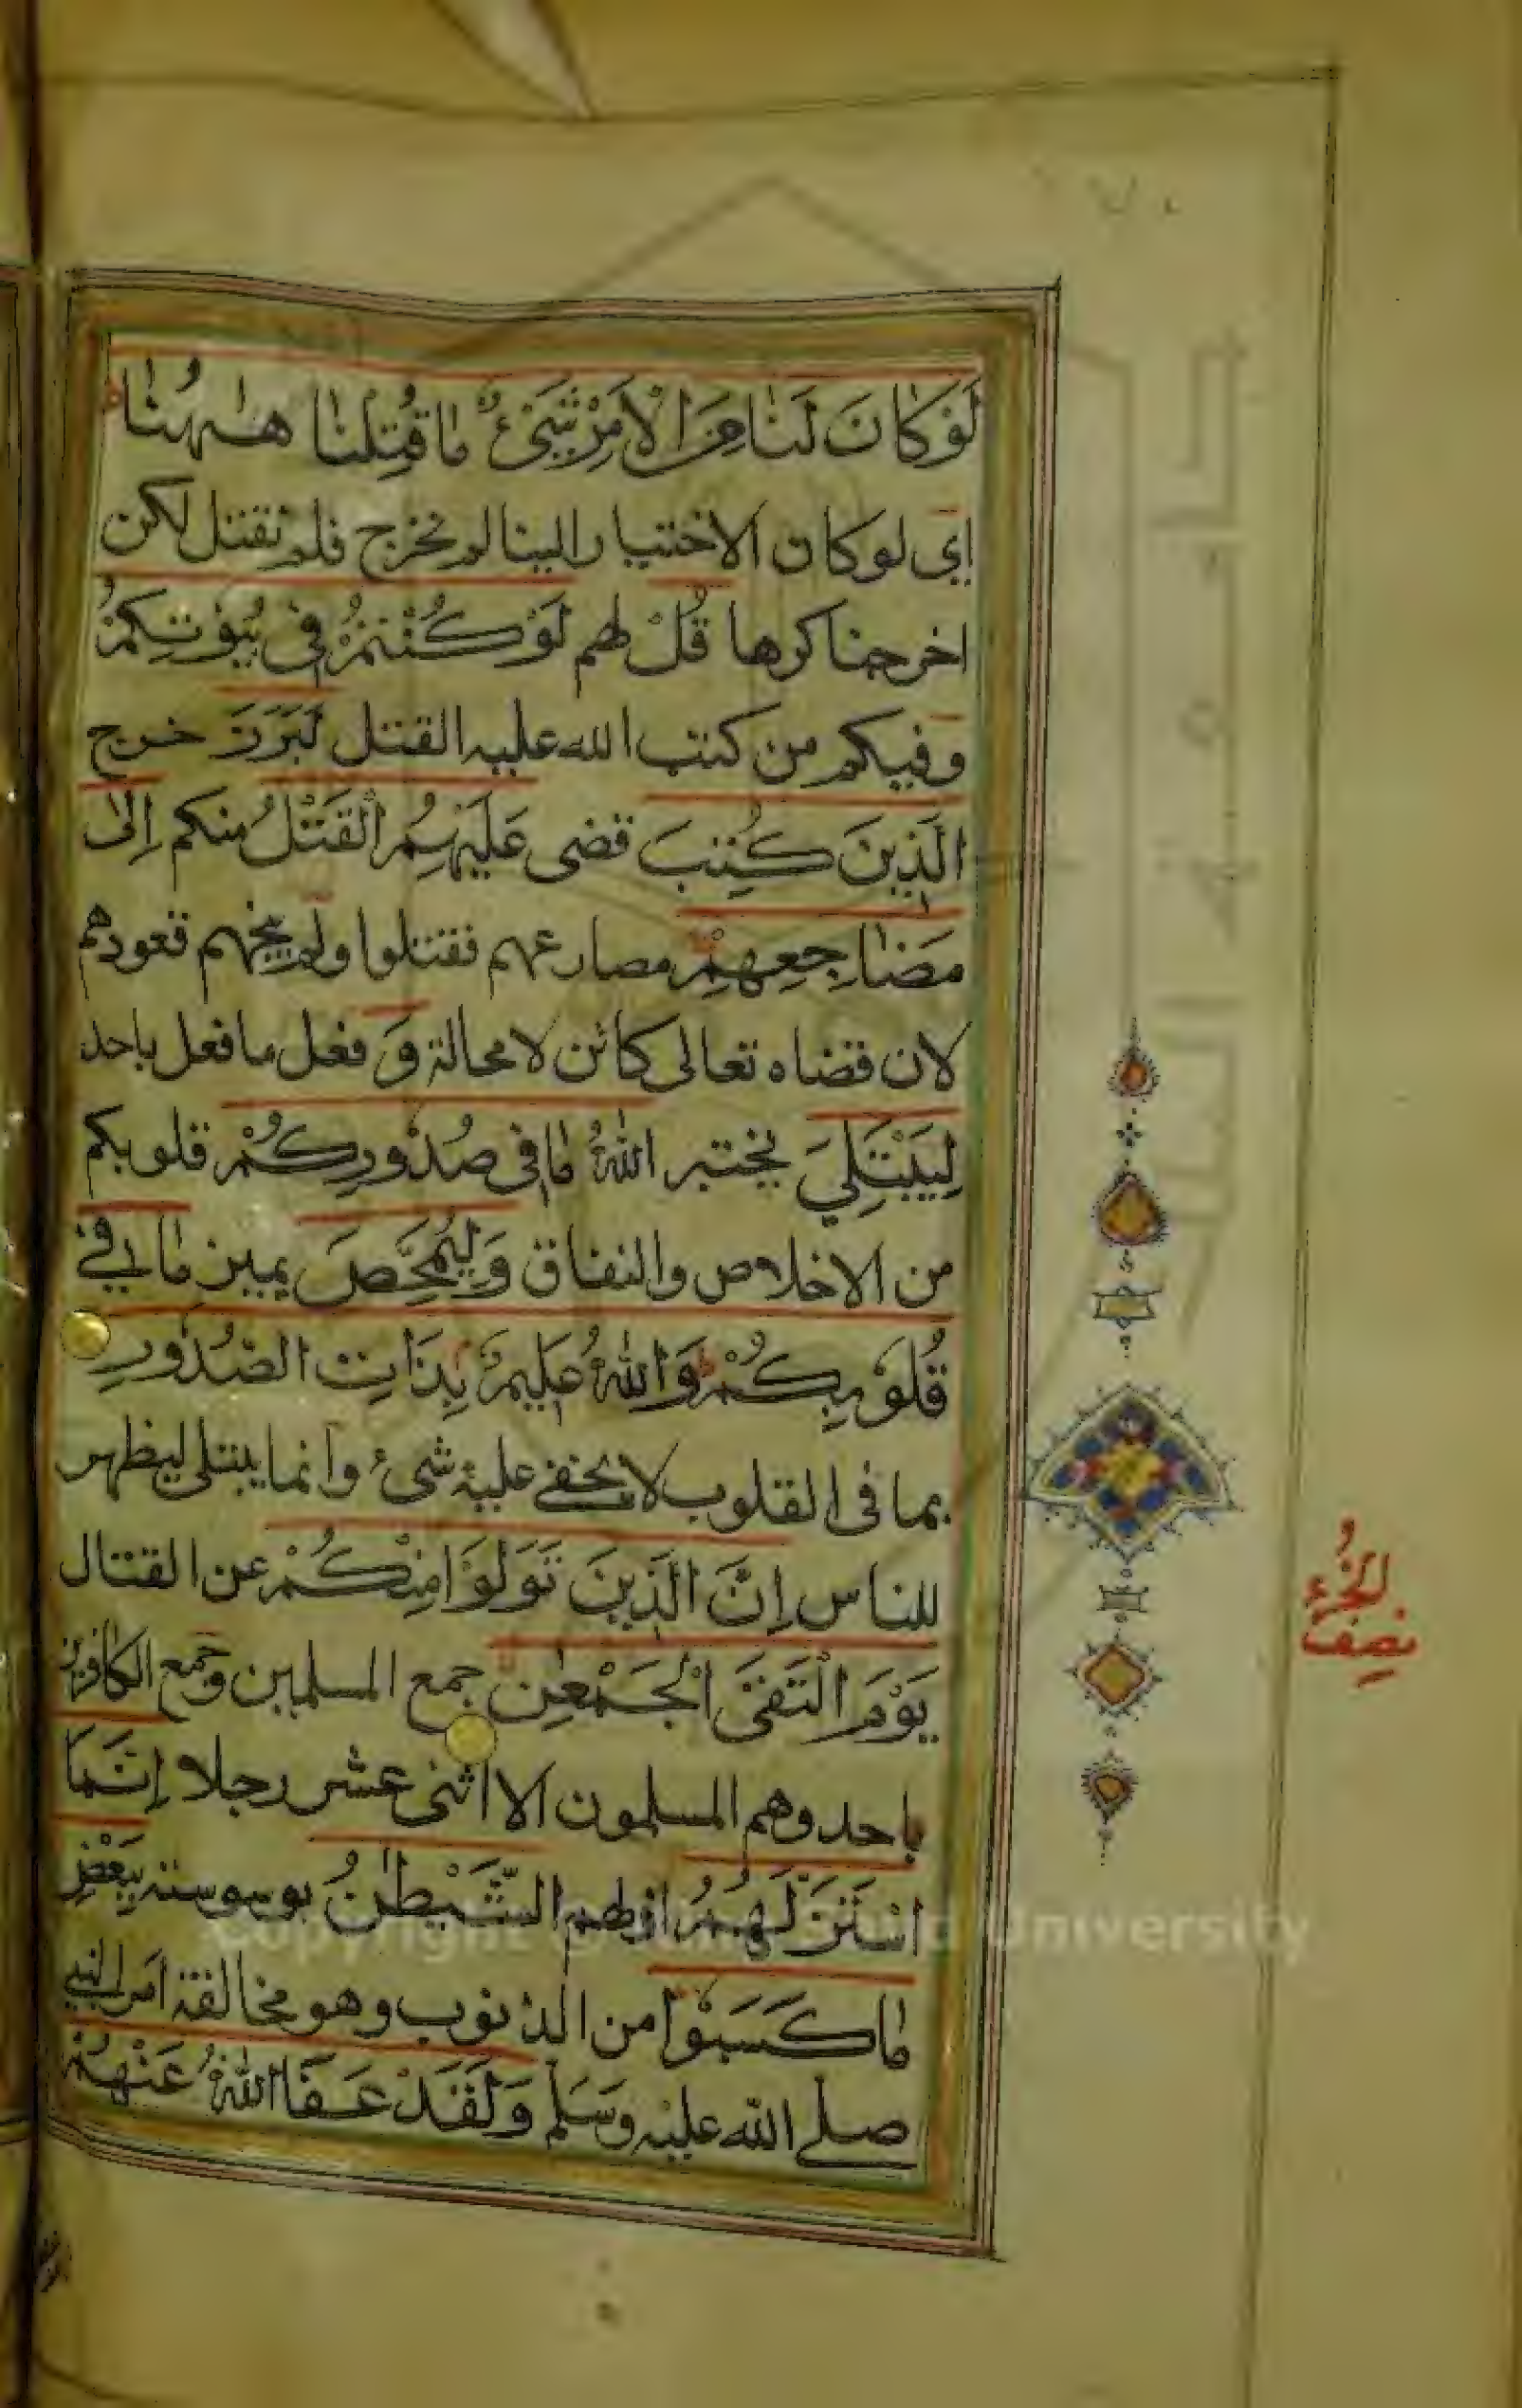 لَوْ كَانَ لَنَا مِنَ الْاَمْرِ شَیْءٌ مَا قُتِلْنَا هٰهُنَا ط
اى لو كان الاختيار الينا لم نخرج فلم نقتل لكن
اخرجنا كرها قُلْ لهم لَوْ كُنْتُمْ فِي بُيُوْتِكُمْ
وفيكم من كتب الله عليه القتل لَبَرَزَ خرج
الَّذِينَ كُتِبَ قضى عَلَيْهِمُ الْقَتْلُ منكم اِلٰى
مَضَاجِعِهِمْ مصارعهم فقتلوا ولم ينجهم قعودهم
لان قضاه تعالى كائن لا محالة وَ فعل ما فعل باحد
لِيَبْتَلِيَ يختبر اللهُ مَا فِي صُدُورِكُمْ قلوبكم
من الاخلاص والنفاق وَلِيُمَحِّصَ يميز مَا فِي
قُلُوْبِكُمْ ط وَاللهُ عَلِيمٌ بِذَاتِ الصُّدُورِ
بما فى القلوب لا يخفى عليه شىء وانما يبتلى ليظهر
للناس اِنَّ الَّذِينَ تَوَلَّوْا مِنْكُمْ عن القتال
يَوْمَ الْتَقَى الْجَمْعٰنِ جمع المسلمين وجمع الكافرين
باحد وهم المسلمون الا اثنى عشر رجلا اِنَّمَا
اسْتَزَلَّهُمُ ازلهم الشَّيْطٰنُ بوسوسته بِبَعْضِ
مَا كَسَبُوْا من الذنوب وهو مخالفة امر النبي
صلى الله عليه وسلم وَلَقَدْ عَفَا اللهُ عَنْهُمْ
نصف الجزء
Copyright © King Saud University